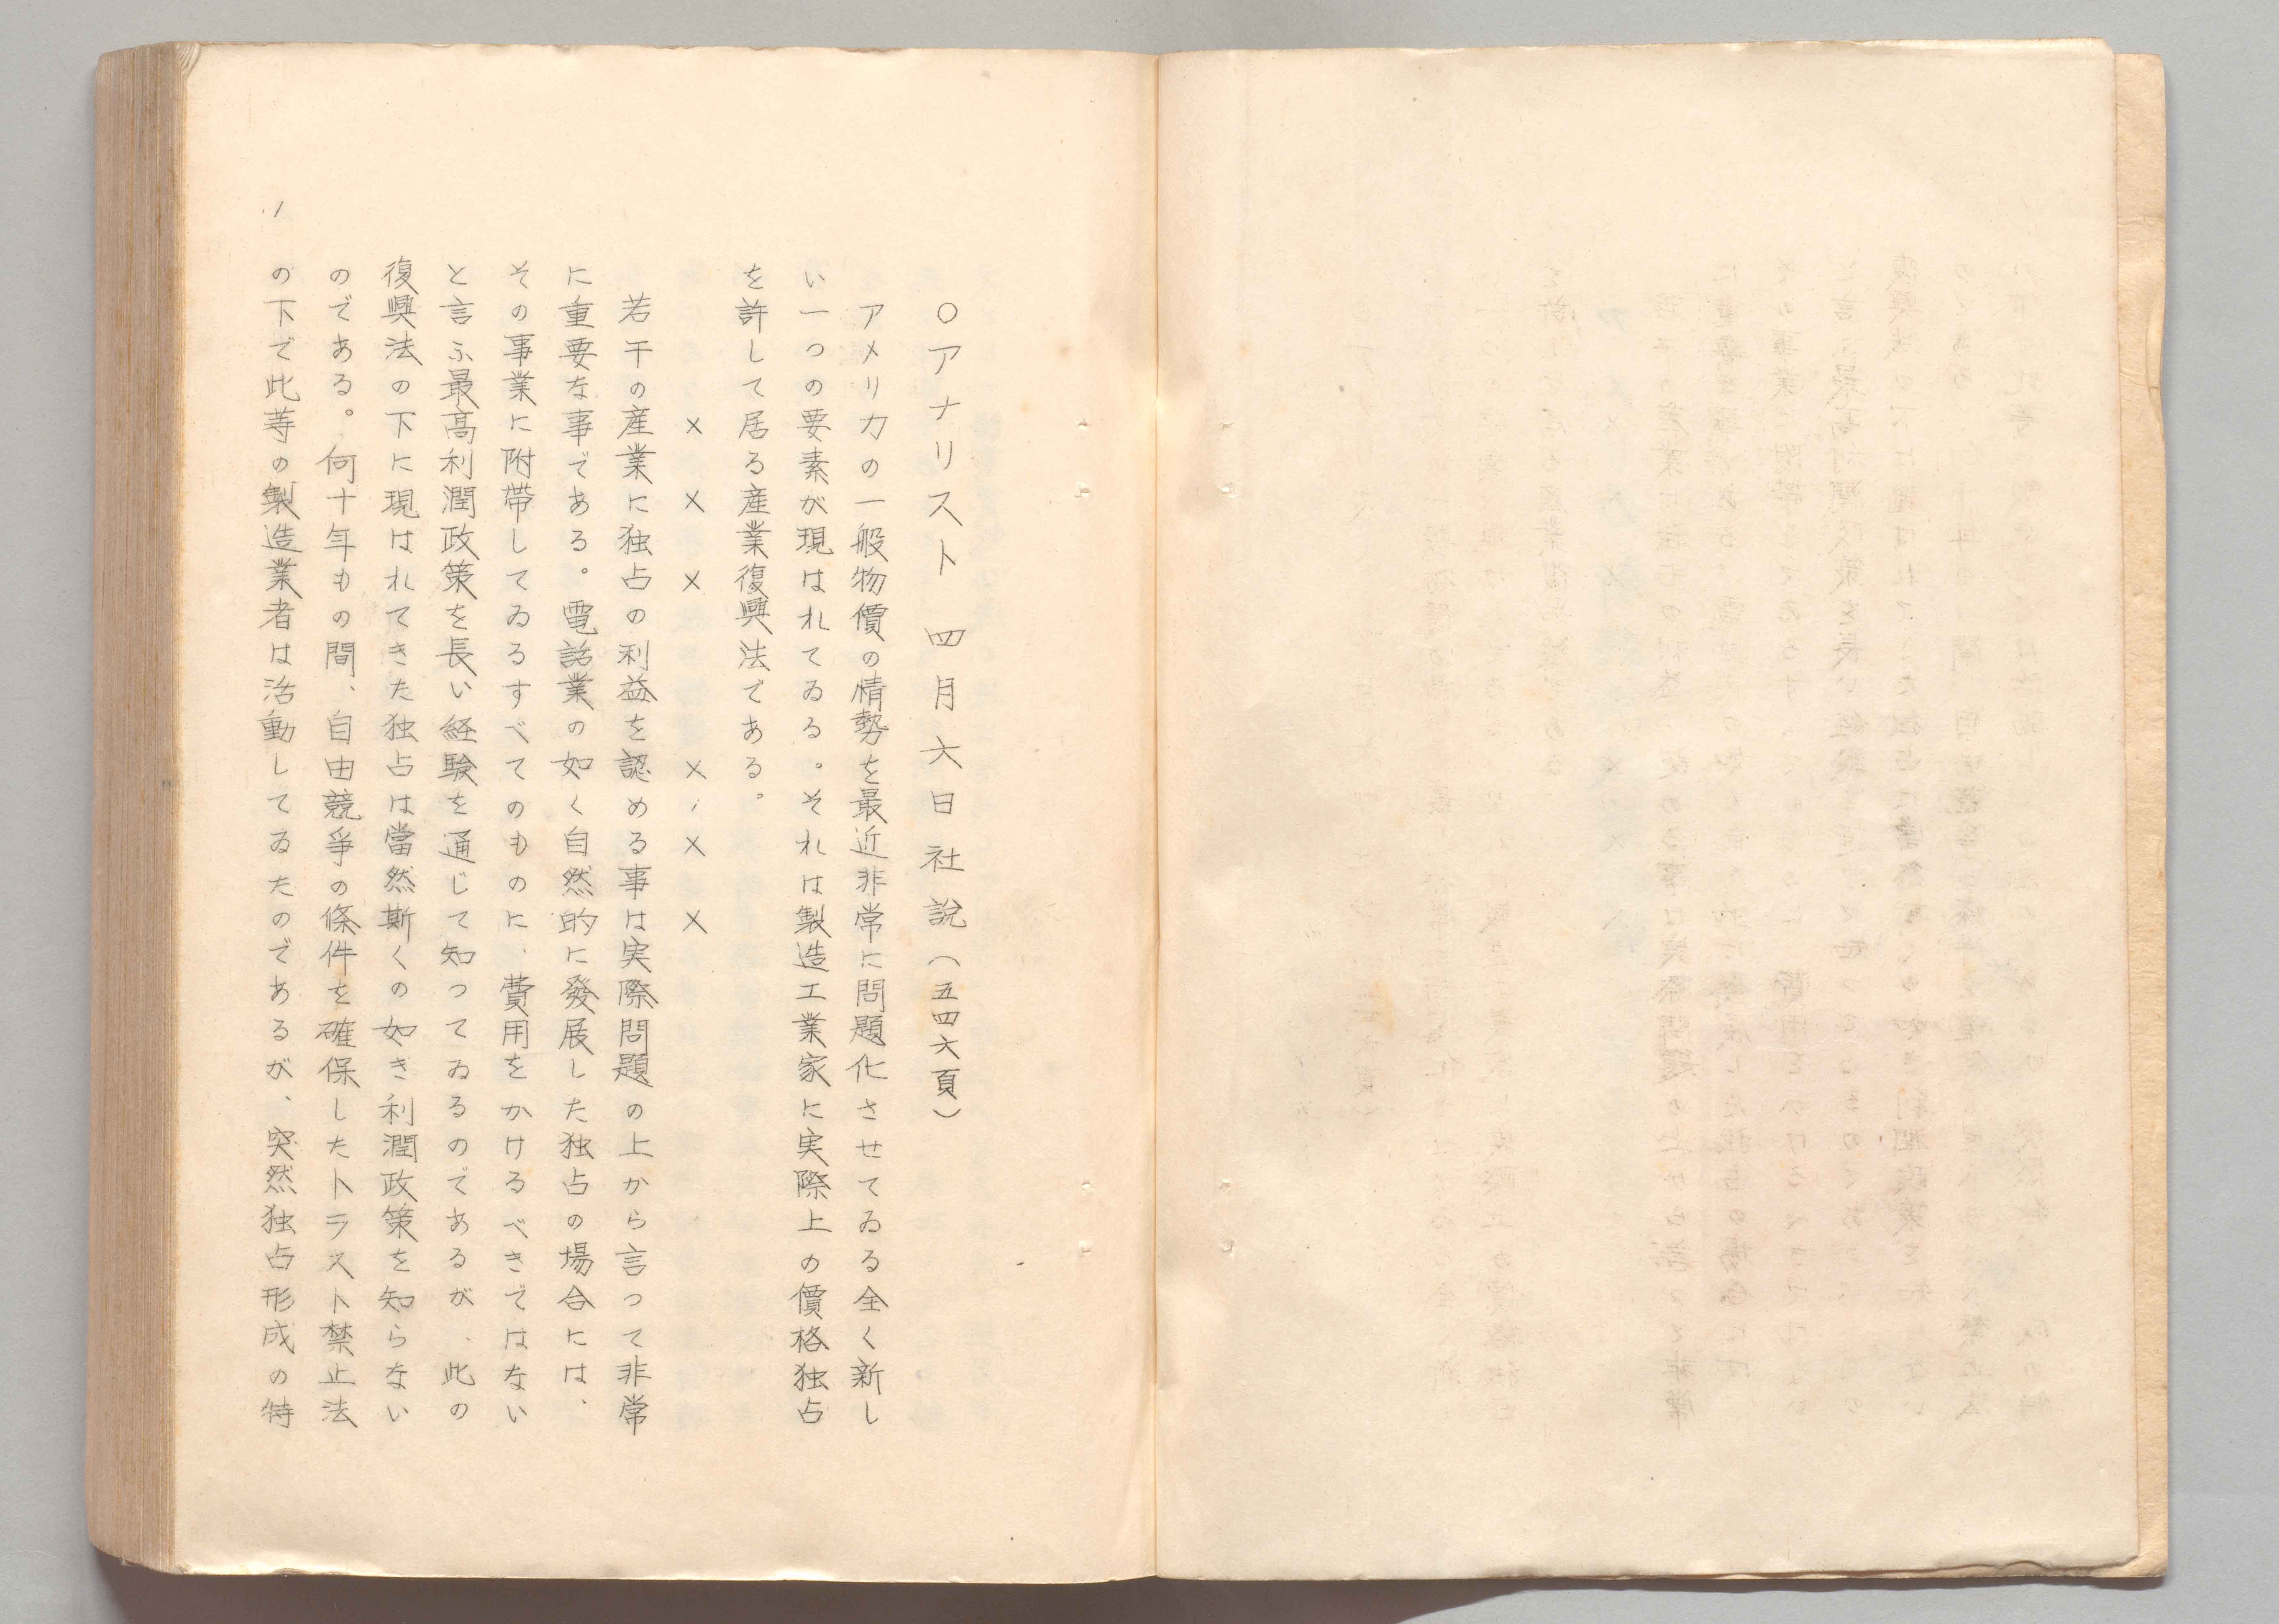 〇アナリスト 四月六日社説（五四六頁）
アメリカの一般物價の情勢を最近非常に問題化させてゐる全く新し
い一つの要素が現はれてゐる。それは製造工業家に実際上の價格独占
を許して居る産業復興法である。
×××××××
若干の産業に独占の利益を認める事は実際問題の上から言って非常
に重要な事である。電話業の如く自然的に發展した独占の場合には、
その事業に附帶してゐるすべてのものに、費用をかけるべきではない
と言ふ最高利潤政策を長い経験を通じて知ってゐるのであるが、此の
復興法の下に現はれてきた独占は當然斯くの如き利潤政策を知らない
のである。何十年もの間、自由競爭の條件を確保したトラスト禁止法
の下で此等の製造業者は活動してゐたのであるが、突然独占形成の特
1